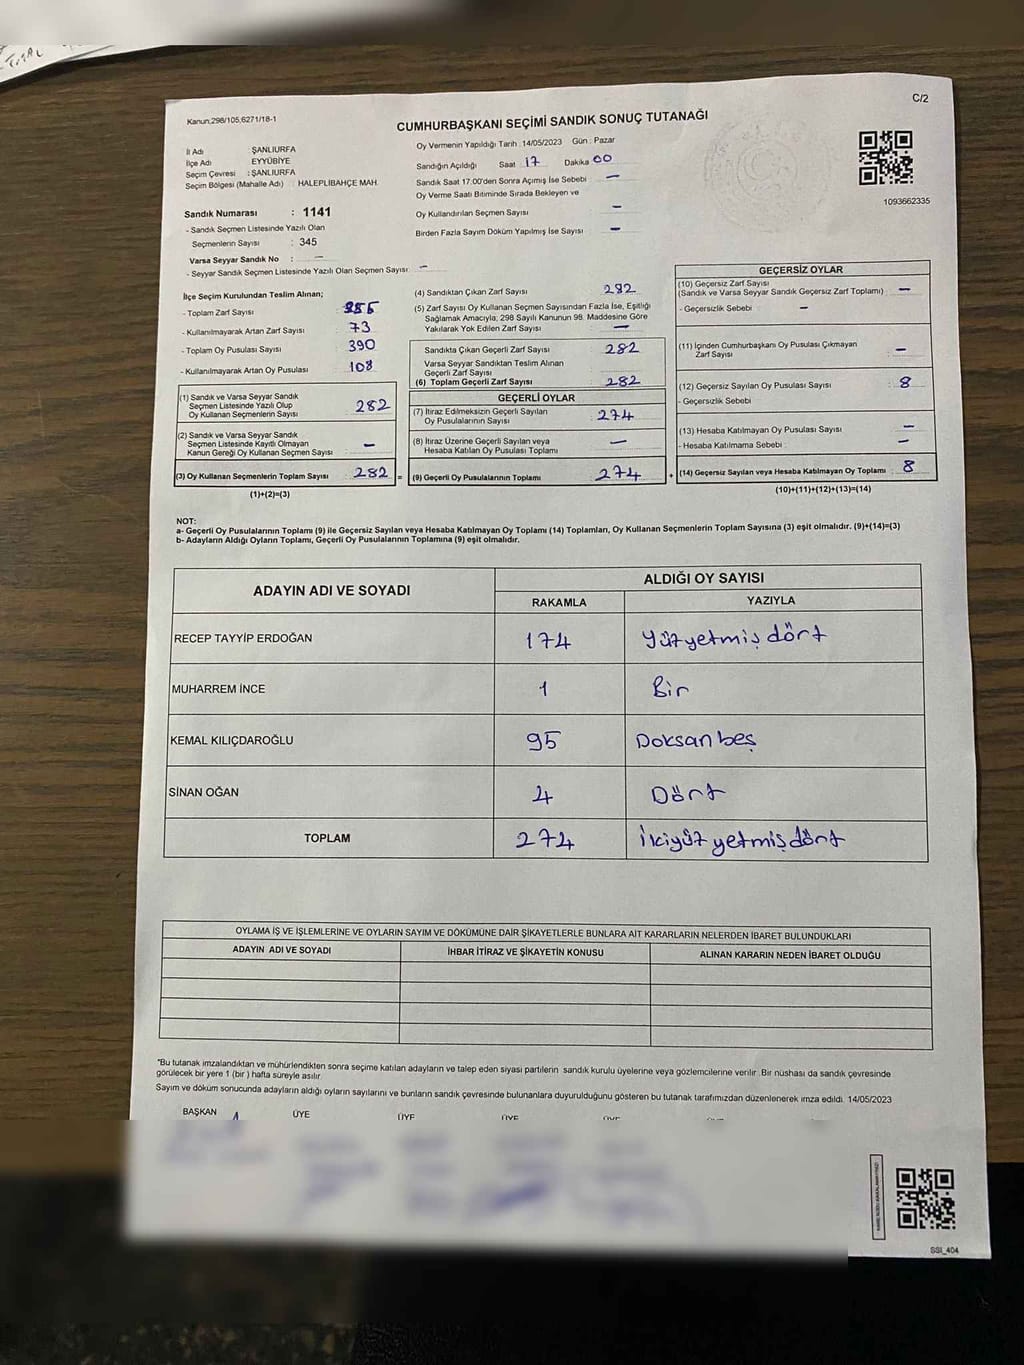 C/2
Kanun;298/105,6271/18-1
CUMHURBAŞKANI SEÇİMİ SANDIK SONUÇ TUTANAĞI
İl Adı : ŞANLIURFA
İlçe Adı EYYÜBİYE
Seçim Çevresi : ŞANLIURFA
Seçim Bölgesi (Mahalle Adı) : HALEPLİBAHÇE MAH.
Oy Vermenin Yapıldığı Tarih :14/05/2023 Gün : Pazar
Sandığın Açıldığı Saat 17 Dakika 00
Sandık Saat 17:00'den Sonra Açımış İse Sebebi —
Oy Verme Saati Bitiminde Sırada Bekleyen ve
Oy Kullandırılan Seçmen Sayısı —
Birden Fazla Sayım Döküm Yapılmış İse Sayısı —
1093662335
Sandık Numarası : 1141
- Sandık Seçmen Listesinde Yazılı Olan
Seçmenlerin Sayısı : 345
Varsa Seyyar Sandık No : —
- Seyyar Sandık Seçmen Listesinde Yazılı Olan Seçmen Sayısı: —
İlçe Seçim Kurulundan Teslim Alınan;
- Toplam Zarf Sayısı : 355
- Kullanılmayarak Artan Zarf Sayısı : 73
- Toplam Oy Pusulası Sayısı : 390
- Kullanılmayarak Artan Oy Pusulası : 108
(1) Sandık ve Varsa Seyyar Sandık
Seçmen Listesinde Yazılı Olup
Oy Kullanan Seçmenlerin Sayısı 282
(2) Sandık ve Varsa Seyyar Sandık
Seçmen Listesinde Kayıtlı Olmayan
Kanun Gereği Oy Kullanan Seçmen Sayısı —
(3) Oy Kullanan Seçmenlerin Toplam Sayısı 282 =
(1)+(2)=(3)
(4) Sandıktan Çıkan Zarf Sayısı 282
(5) Zarf Sayısı Oy Kullanan Seçmen Sayısından Fazla İse, Eşitliği
Sağlamak Amacıyla; 298 Sayılı Kanunun 98. Maddesine Göre
Yakılarak Yok Edilen Zarf Sayısı —
Sandıkta Çıkan Geçerli Zarf Sayısı : 282
Varsa Seyyar Sandıktan Teslim Alınan
Geçerli Zarf Sayısı
(6) Toplam Geçerli Zarf Sayısı : 282
GEÇERLİ OYLAR
(7) İtiraz Edilmeksizin Geçerli Sayılan
Oy Pusulalarının Sayısı : 274
(8) İtiraz Üzerine Geçerli Sayılan veya
Hesaba Katılan Oy Pusulası Toplamı —
(9) Geçerli Oy Pusulalarının Toplamı 274 +
GEÇERSİZ OYLAR
(10) Geçersiz Zarf Sayısı
(Sandık ve Varsa Seyyar Sandık Geçersiz Zarf Toplamı) : —
- Geçersizlik Sebebi : —
(11) İçinden Cumhurbaşkanı Oy Pusulası Çıkmayan
Zarf Sayısı : —
(12) Geçersiz Sayılan Oy Pusulası Sayısı : 8
- Geçersizlik Sebebi
(13) Hesaba Katılmayan Oy Pusulası Sayısı : —
- Hesaba Katılmama Sebebi : —
(14) Geçersiz Sayılan veya Hesaba Katılmayan Oy Toplamı : 8
(10)+(11)+(12)+(13)=(14)
NOT:
a- Geçerli Oy Pusulalarının Toplamı (9) ile Geçersiz Sayılan veya Hesaba Katılmayan Oy Toplamı (14) Toplamları, Oy Kullanan Seçmenlerin Toplam Sayısına (3) eşit olmalıdır. (9)+(14)=(3)
b- Adayların Aldığı Oyların Toplamı, Geçerli Oy Pusulalarının Toplamına (9) eşit olmalıdır.
ADAYIN ADI VE SOYADI ALDIĞI OY SAYISI
RAKAMLA YAZIYLA
RECEP TAYYİP ERDOĞAN 174 Yüzyetmiş dört
MUHARREM İNCE 1 Bir
KEMAL KILIÇDAROĞLU 95 Doksan beş
SİNAN OĞAN 4 Dört
TOPLAM 274 İkiyüz yetmiş dört
OYLAMA İŞ VE İŞLEMLERİNE VE OYLARIN SAYIM VE DÖKÜMÜNE DAİR ŞİKAYETLERLE BUNLARA AİT KARARLARIN NELERDEN İBARET BULUNDUKLARI
ADAYIN ADI VE SOYADI İHBAR İTİRAZ VE ŞİKAYETİN KONUSU ALINAN KARARIN NEDEN İBARET OLDUĞU
*Bu tutanak imzalandıktan ve mühürlendikten sonra seçime katılan adayların ve talep eden siyasi partilerin sandık kurulu üyelerine veya gözlemcilerine verilir .Bir nüshası da sandık çevresinde
görülecek bir yere 1 (bir ) hafta süreyle asılır.
Sayım ve döküm sonucunda adayların aldığı oyların sayılarını ve bunların sandık çevresinde bulunanlara duyurulduğunu gösteren bu tutanak tarafımızdan düzenlenerek imza edildi. 14/05/2023
BAŞKAN ÜYE ÜYE ÜYE
SSI_404